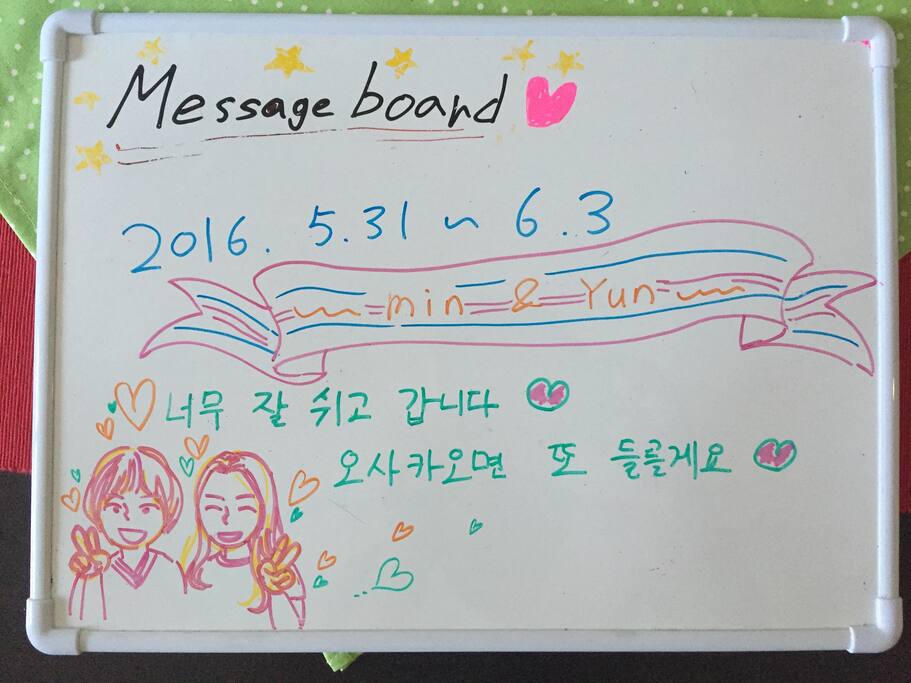 Message board
2016. 5.31 ~ 6.3
min & Yun
너무 잘 쉬고 갑니다
오사카오면 또 들를게요